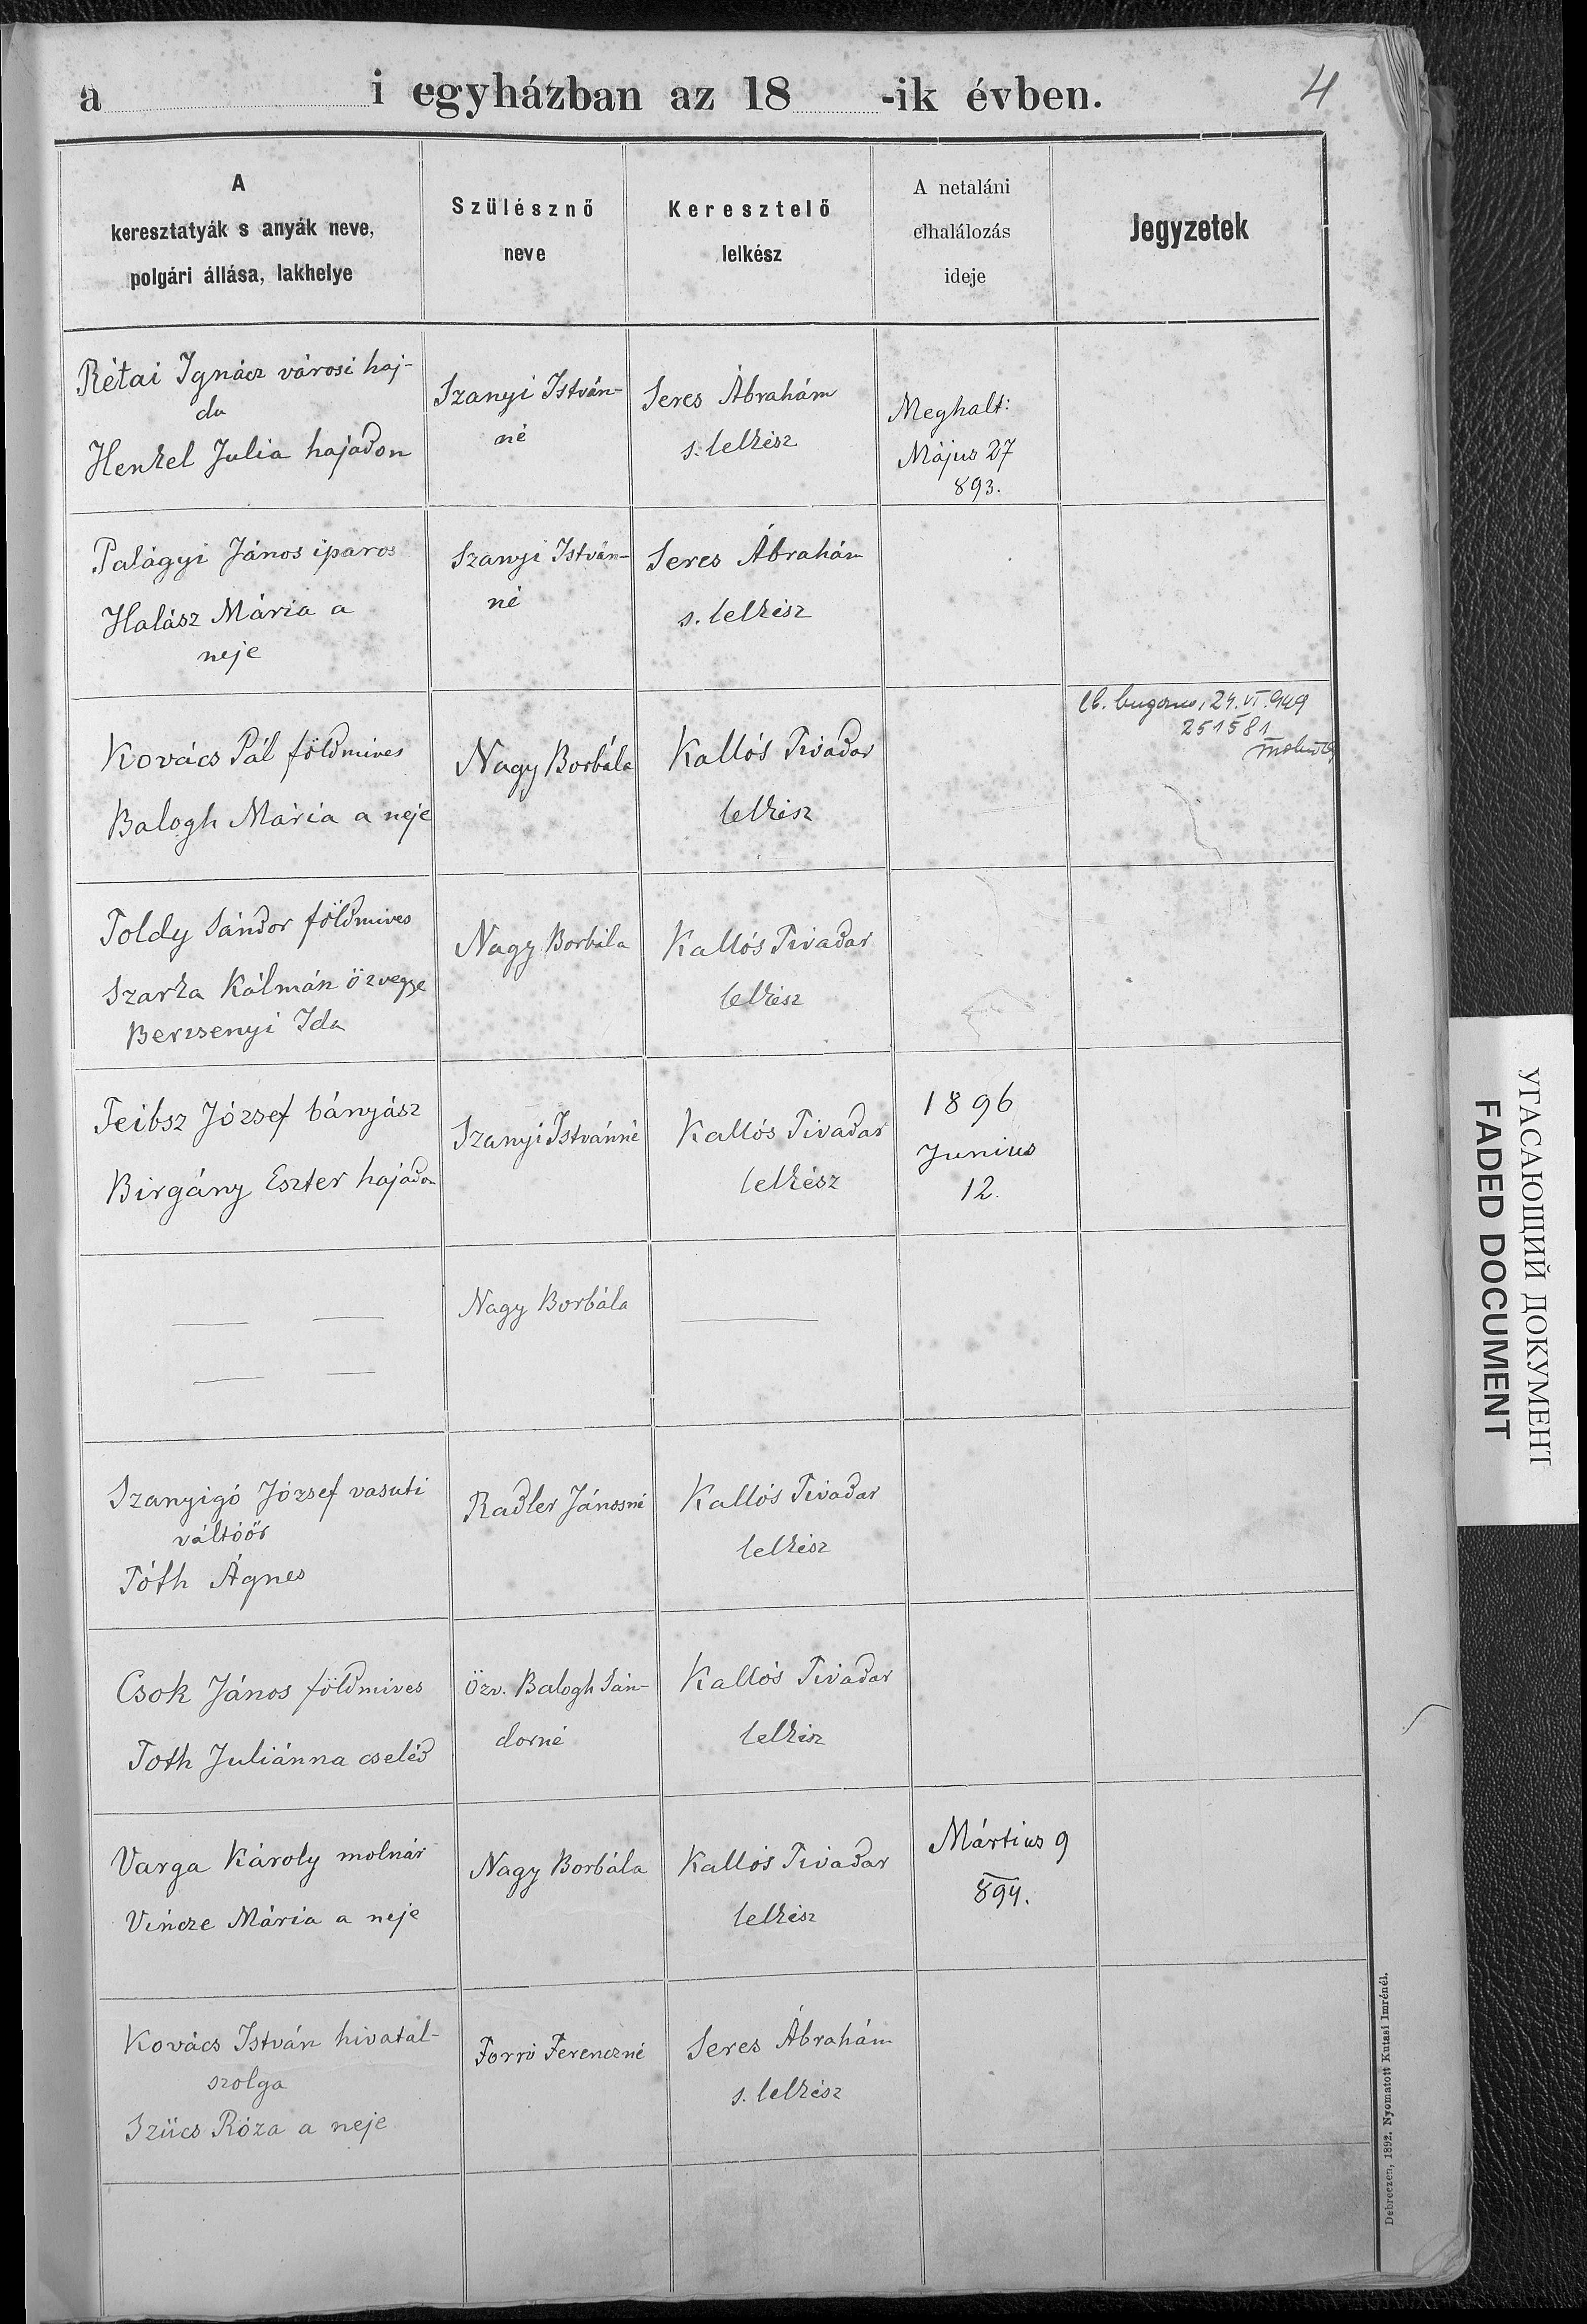 a i egyházban az 18 -ik évben.
4
A
keresztatyák s anyák neve,
polgári állása, lakhelye
Szülésznő
neve
Keresztelő
lelkész
A netaláni
elhalálozás
ideje
Jegyzetek
Rétai Ignácz városi haj-
du
Henkel Julia hajadon
Szanyi István-
né
Seres Ábrahám
s. lelkész
Meghalt:
Május 27
893.
Palágyi János iparos
Halász Mária a
neje
Szanyi István-
né
Seres Ábrahám
s. lelkész
Kovács Pál földmives
Balogh Mária a neje
Nagy Borbála
Kallós Tivadar
lelkész
24. VI. 949
251581
Toldy Sándor földmives
Szarka Kálmán özvegye
Berzsenyi Ida
Nagy Borbála
Kallós Tivadar
lelkész
Teibsz József bányász
Birgány Eszter hajadon
Szanyi Istvánné
Kallós Tivadar
lelkész
1896
Junius
12.
Nagy Borbála
Szanyigó József vasuti
váltóőr
Tóth Ágnes
Radler Jánosné
Kallós Tivadar
lelkész
Csok János földmives
Toth Juliánna cseléd
Özv. Balogh Sán-
dorné
Kallós Tivadar
lelkész
Varga Károly molnár
Vincze Mária a neje
Nagy Borbála
Kallós Tivadar
lelkész
Mártius 9
894.
Kovács István hivatal-
szolga
Szücs Róza a neje
Forró Ferenczné
Seres Ábrahám
s. lelkész
Debreczen, 1892. Nyomatott Kutasi Imrénél.
УГАСАЮЩИЙ ДОКУМЕНТ
FADED DOCUMENT